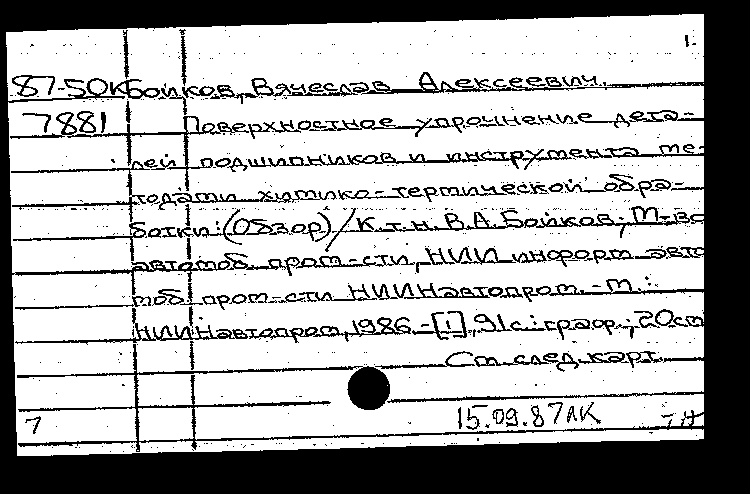 1.
87-50к Бойков, Вячеслав Алексеевич.
7881 Поверхностное упрочнение дета-
лей подшипников и инструмента ме-
тодами химико-термической обра-
ботки: (Обзор) / К.т.н. В.А. Бойков; М-во
автомоб. пром-сти, НИИ информ. авто
моб. пром-сти НИИНавтопром. - М.:
НИИНавтопром, 1986. - [1], 91 с.: граф.; 20 см
См. след. карт.
15.09.87 ЛК
7